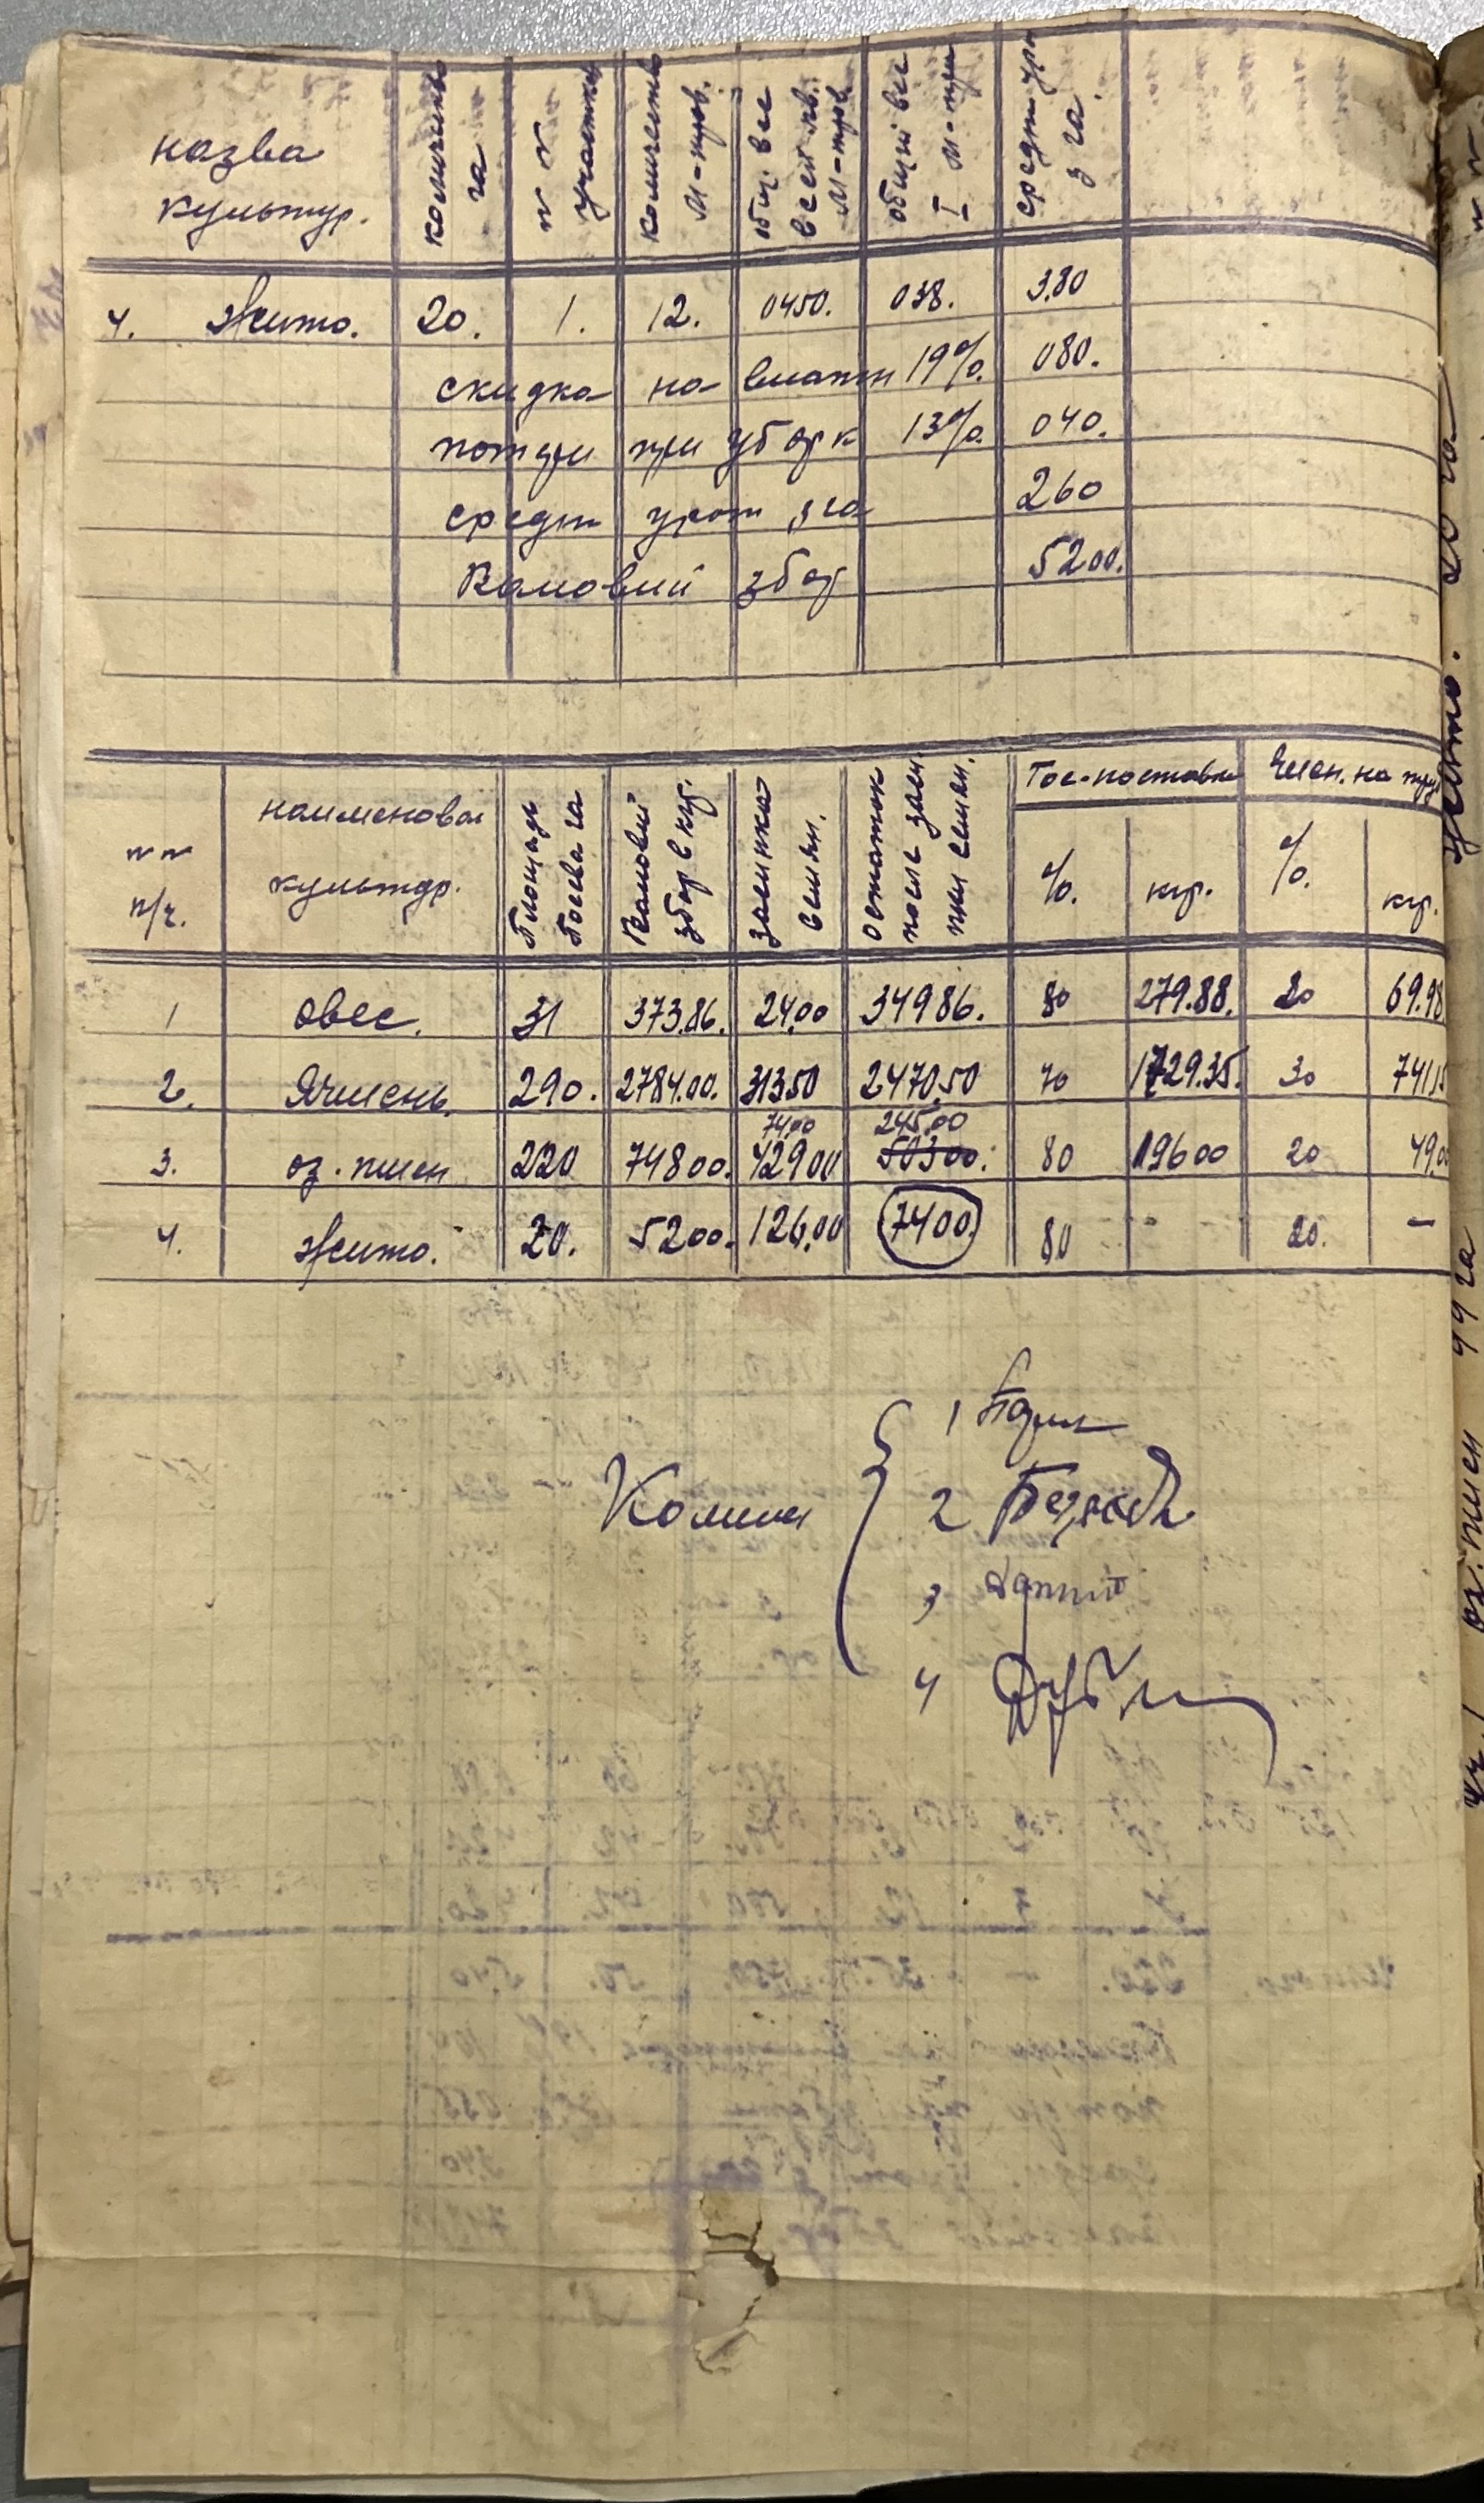 назва культур. количеств га №№ участка количеств м-тров. общ. вес всей пв. м-тров общий вес I м-тра средн ур з га.
4. Жито. 20. 1. 12. 0450. 038. 3.80
скидка на влагн 19%. 080.
потери при уборк 13%. 040.
средн урож з га 260
Валовий збор 5200.
№№ п/ч. наименован культур. Площадь посева га Валовий збор в кц. засипка семян. остаток после засипки семян. Гос-поставк %. кгр. Числ. на труд %. кгр.
1 Овес. 31 373.86. 24.00 349 86. 80 279.88. 20 69.98
2. Ячмень. 290. 2784.00. 313.50 2470.50 70 1729.35. 30 741.15
74.00 245.00
3. оз. пшен 220 748 00. 429 00 503 00. 80 196 00 20 49.00
4. Жито. 20. 52 00. 126.00 74 00. 80 - 20. -
Комисия
1
2
3
4
Жито. 20 га
оз. пшен 44 га